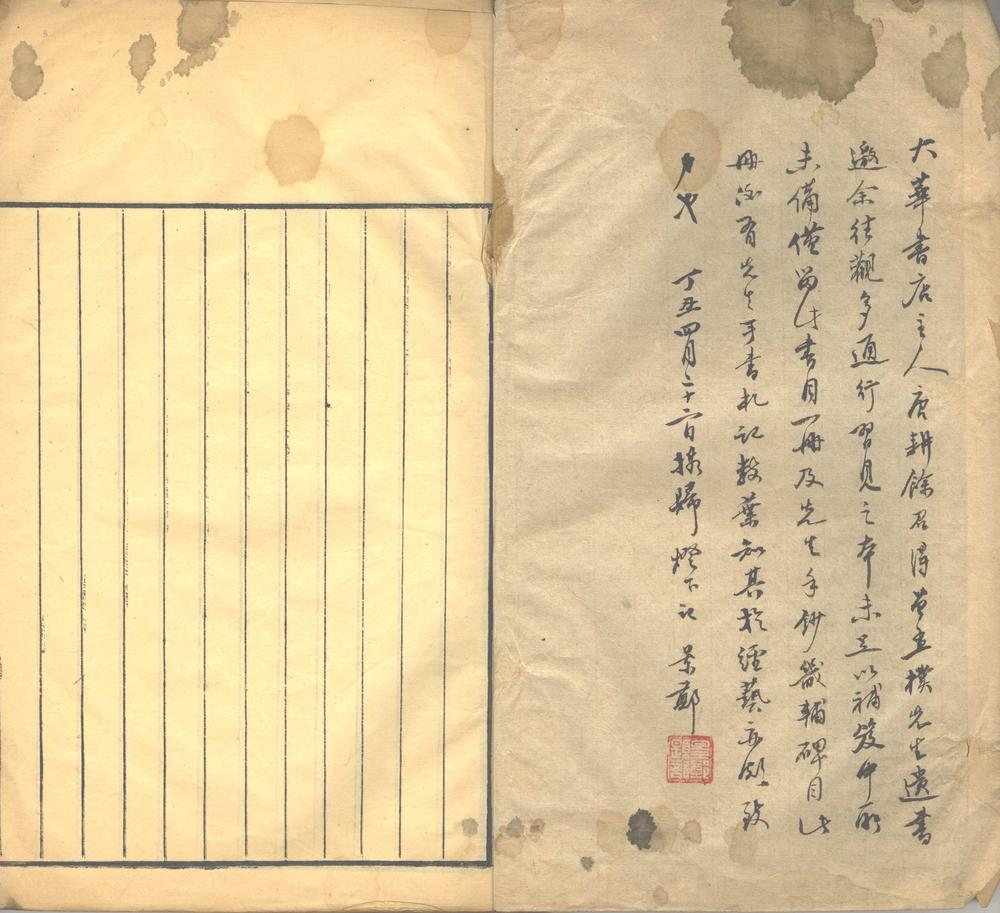 大華書店主人唐耕餘君得曾孟樸先生遺書
邀余往觀多通行習見之本未足以補笈中所
未備僅留此書目一冊及先生手鈔畿輔碑目此
冊後有先生手書札記數葉知其於經藝亦頗致
力也　丁丑四月二十六日掞歸燈下記　景鄭